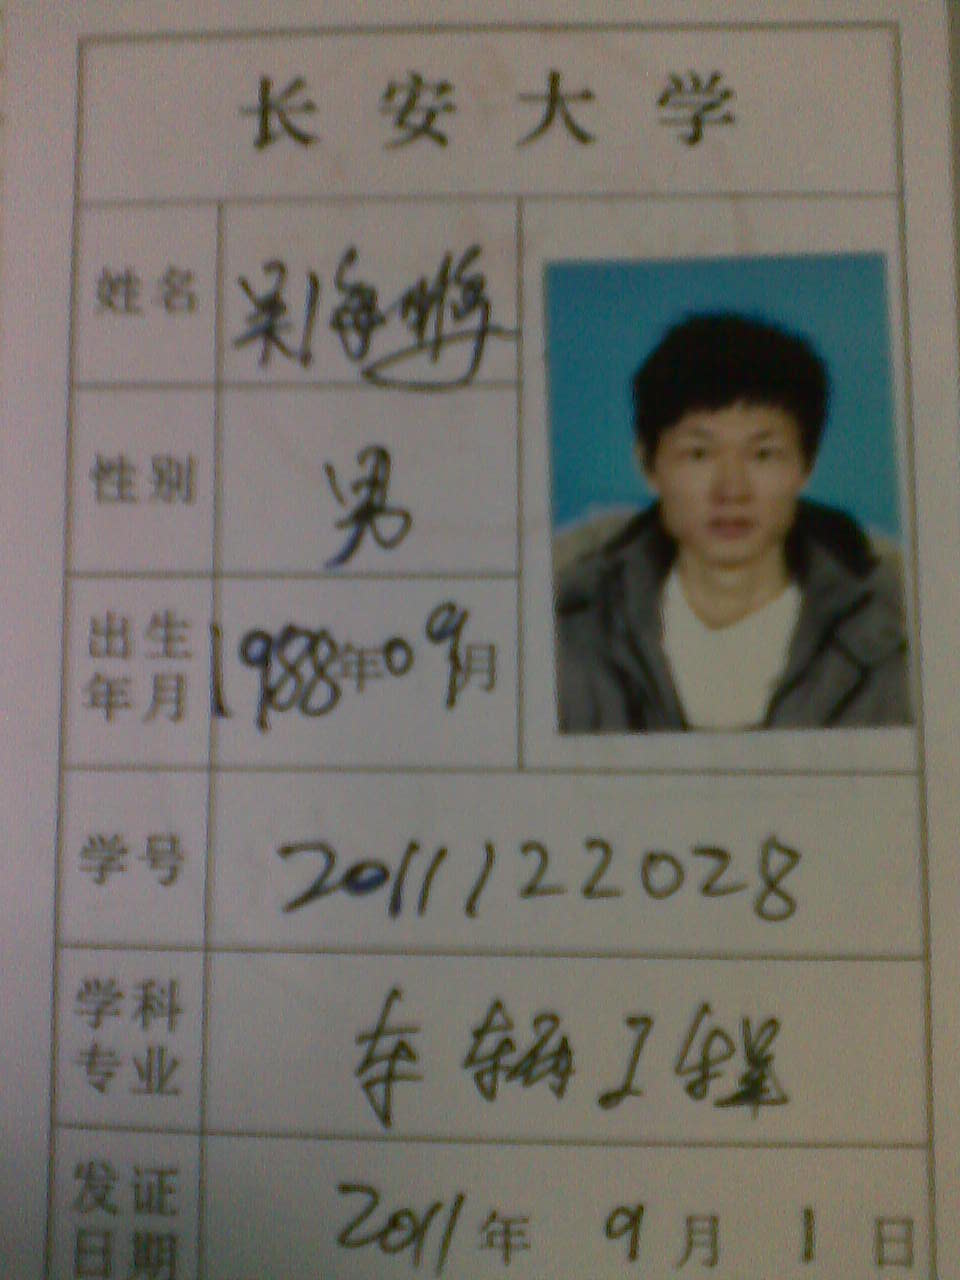 长安大学
姓名 吴海
性别 男
出生年月 1988年09月
学号 2011122028
学科专业 车辆工程
发证日期 2011年9月1日